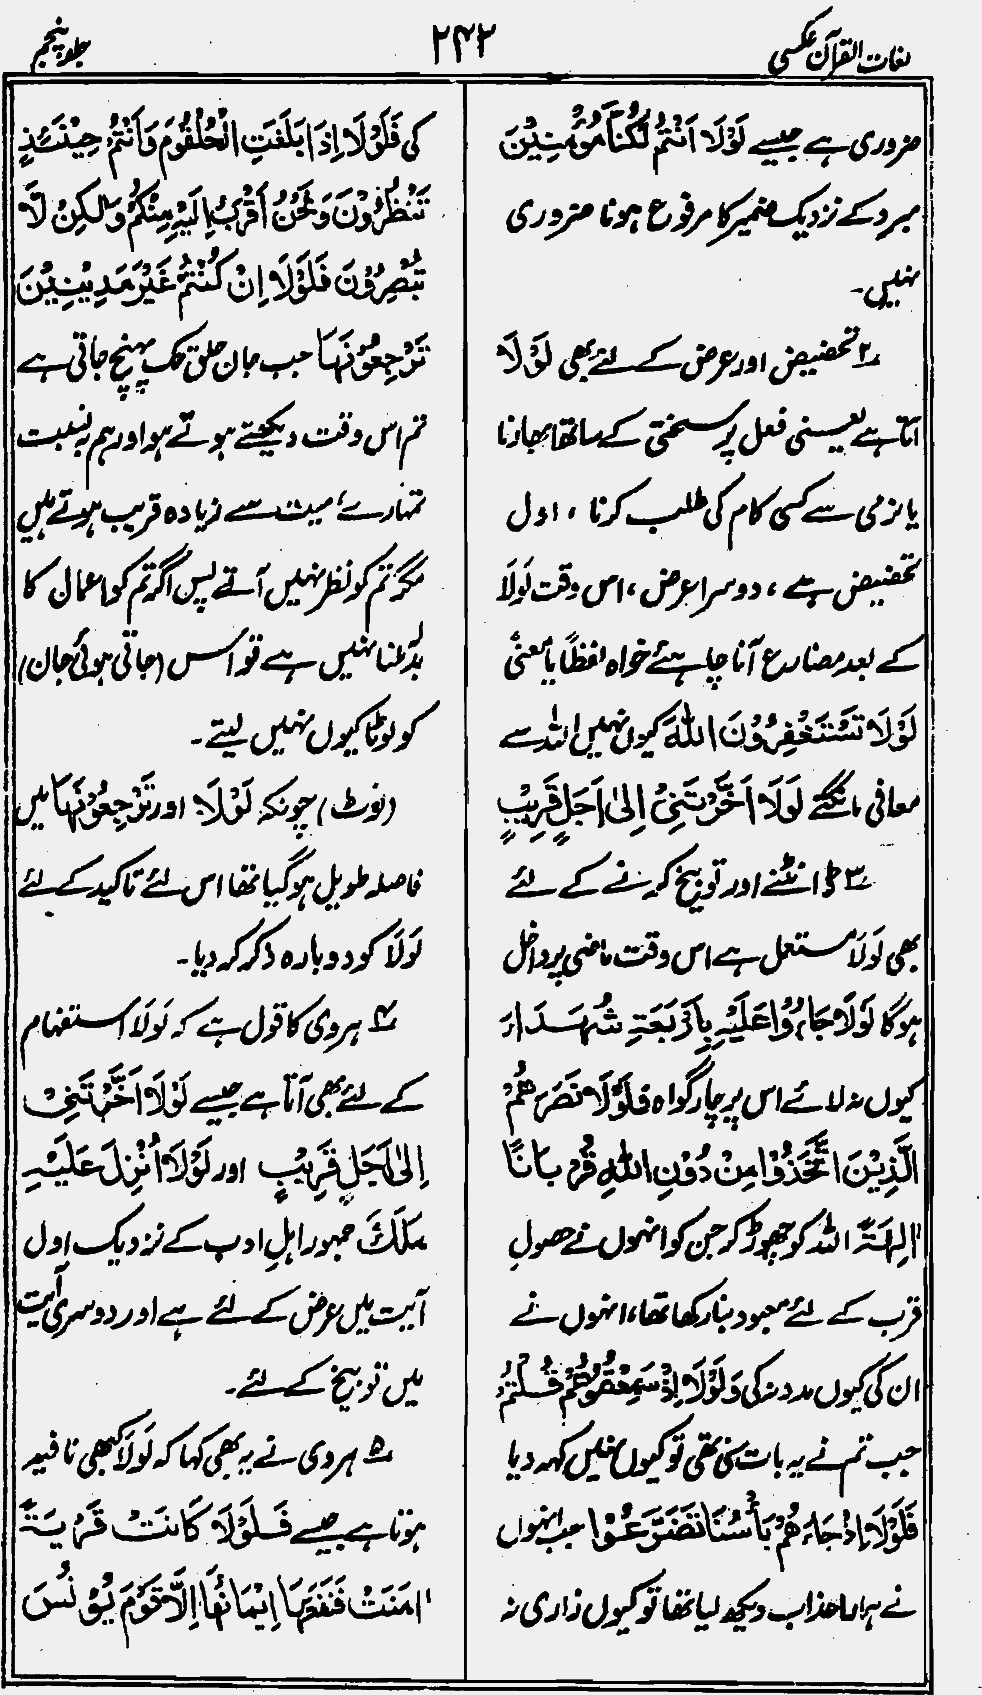 لغات القرآن عکسی
۲۴۲
جلد پنجم
ضروری ہے جیسے لَوْلَا اَنْتُمْ لَكُنَّا مُؤْمِنِيْنَ
مبرد کے نزدیک ضمیر کا مرفوع ہونا ضروری
نہیں۔
۲؎ تحضیض اور عرض کے لئے بھی لَوْلَا
آتا ہے یعنی فعل پر سختی کے ساتھ ابھارنا
یا نرمی سے کسی کام کی طلب کرنا ، اول
تحضیض ہے ، دوسرا عرض ، اس وقت لَوْلَا
کے بعد مضارع آنا چاہئے خواہ لفظًا یا معنًی
لَوْلَا تَسْتَغْفِرُوْنَ اللّٰهَ کیوں نہیں اللہ سے
معافی مانگتے لَوْلَا اَخَّرْتَنِيْ اِلٰى اَجَلٍ قَرِيْبٍ
۳؎ ڈانٹنے اور توبیخ کرنے کے لئے
بھی لَوْلَا مستعمل ہے اس وقت ماضی پر داخل
ہوگا لَوْلَا جَاءُوْا عَلَيْهِ بِاَرْبَعَةِ شُهَدَاءَ
کیوں نہ لائے اس پر چار گواہ فَلَوْلَا نَصَرَهُمُ
الَّذِيْنَ اتَّخَذُوْا مِنْ دُوْنِ اللّٰهِ قُرْبَانًا
اٰلِهَةً اللہ کو چھوڑ کر جن کو انہوں نے حصولِ
قرب کے لئے معبود بنا رکھا تھا، انہوں نے
ان کی کیوں مدد نہ کی وَلَوْلَا اِذْ سَمِعْتُمُوْهُ قُلْتُمْ
جب تم نے یہ بات سنی تھی تو کیوں نہیں کہہ دیا
فَلَوْلَا اِذْ جَاءَهُمْ بَأْسُنَا تَضَرَّعُوْا جب انہوں
نے ہمارا عذاب دیکھ لیا تھا تو کیوں زاری نہ
کی فَلَوْلَا اِذَا بَلَغَتِ الْحُلْقُوْمَ وَاَنْتُمْ حِيْنَئِذٍ
تَنْظُرُوْنَ وَنَحْنُ اَقْرَبُ اِلَيْهِ مِنْكُمْ وَلٰكِنْ لَّا
تُبْصِرُوْنَ فَلَوْلَا اِنْ كُنْتُمْ غَيْرَ مَدِيْنِيْنَ
تَرْجِعُوْنَهَا جب جان حلق تک پہنچ جاتی ہے
تم اس وقت دیکھتے ہوتے ہو اور ہم بہ نسبت
تمہارے، میت سے زیادہ قریب ہوتے ہیں
مگر تم کو نظر نہیں آتے پس اگر تم کو اعمال کا
بدلہ ملنا نہیں ہے تو اُس (جاتی ہوئی جان)
کو لوٹا کیوں نہیں لیتے۔
(نوٹ) چونکہ لَوْلَا اور تَرْجِعُوْنَهَا میں
فاصلہ طویل ہوگیا تھا اس لئے تاکید کے لئے
لَوْلَا کو دوبارہ ذکر کر دیا۔
۴؎ ہروی کا قول ہے کہ لَوْلَا استفہام
کے لئے بھی آتا ہے جیسے لَوْلَا اَخَّرْتَنِيْ
اِلٰى اَجَلٍ قَرِيْبٍ اور لَوْلَا اُنْزِلَ عَلَيْهِ
مَلَكٌ جمہور اہلِ ادب کے نزدیک اول
آیت میں عرض کے لئے ہے اور دوسری آیت
میں توبیخ کے لئے۔
۵؎ ہروی نے یہ بھی کہا کہ لَوْلَا کبھی نافیہ
ہوتا ہے جیسے فَلَوْلَا كَانَتْ قَرْيَةٌ
اٰمَنَتْ فَنَفَعَهَا اِيْمَانُهَا اِلَّا قَوْمَ يُوْنُسَ